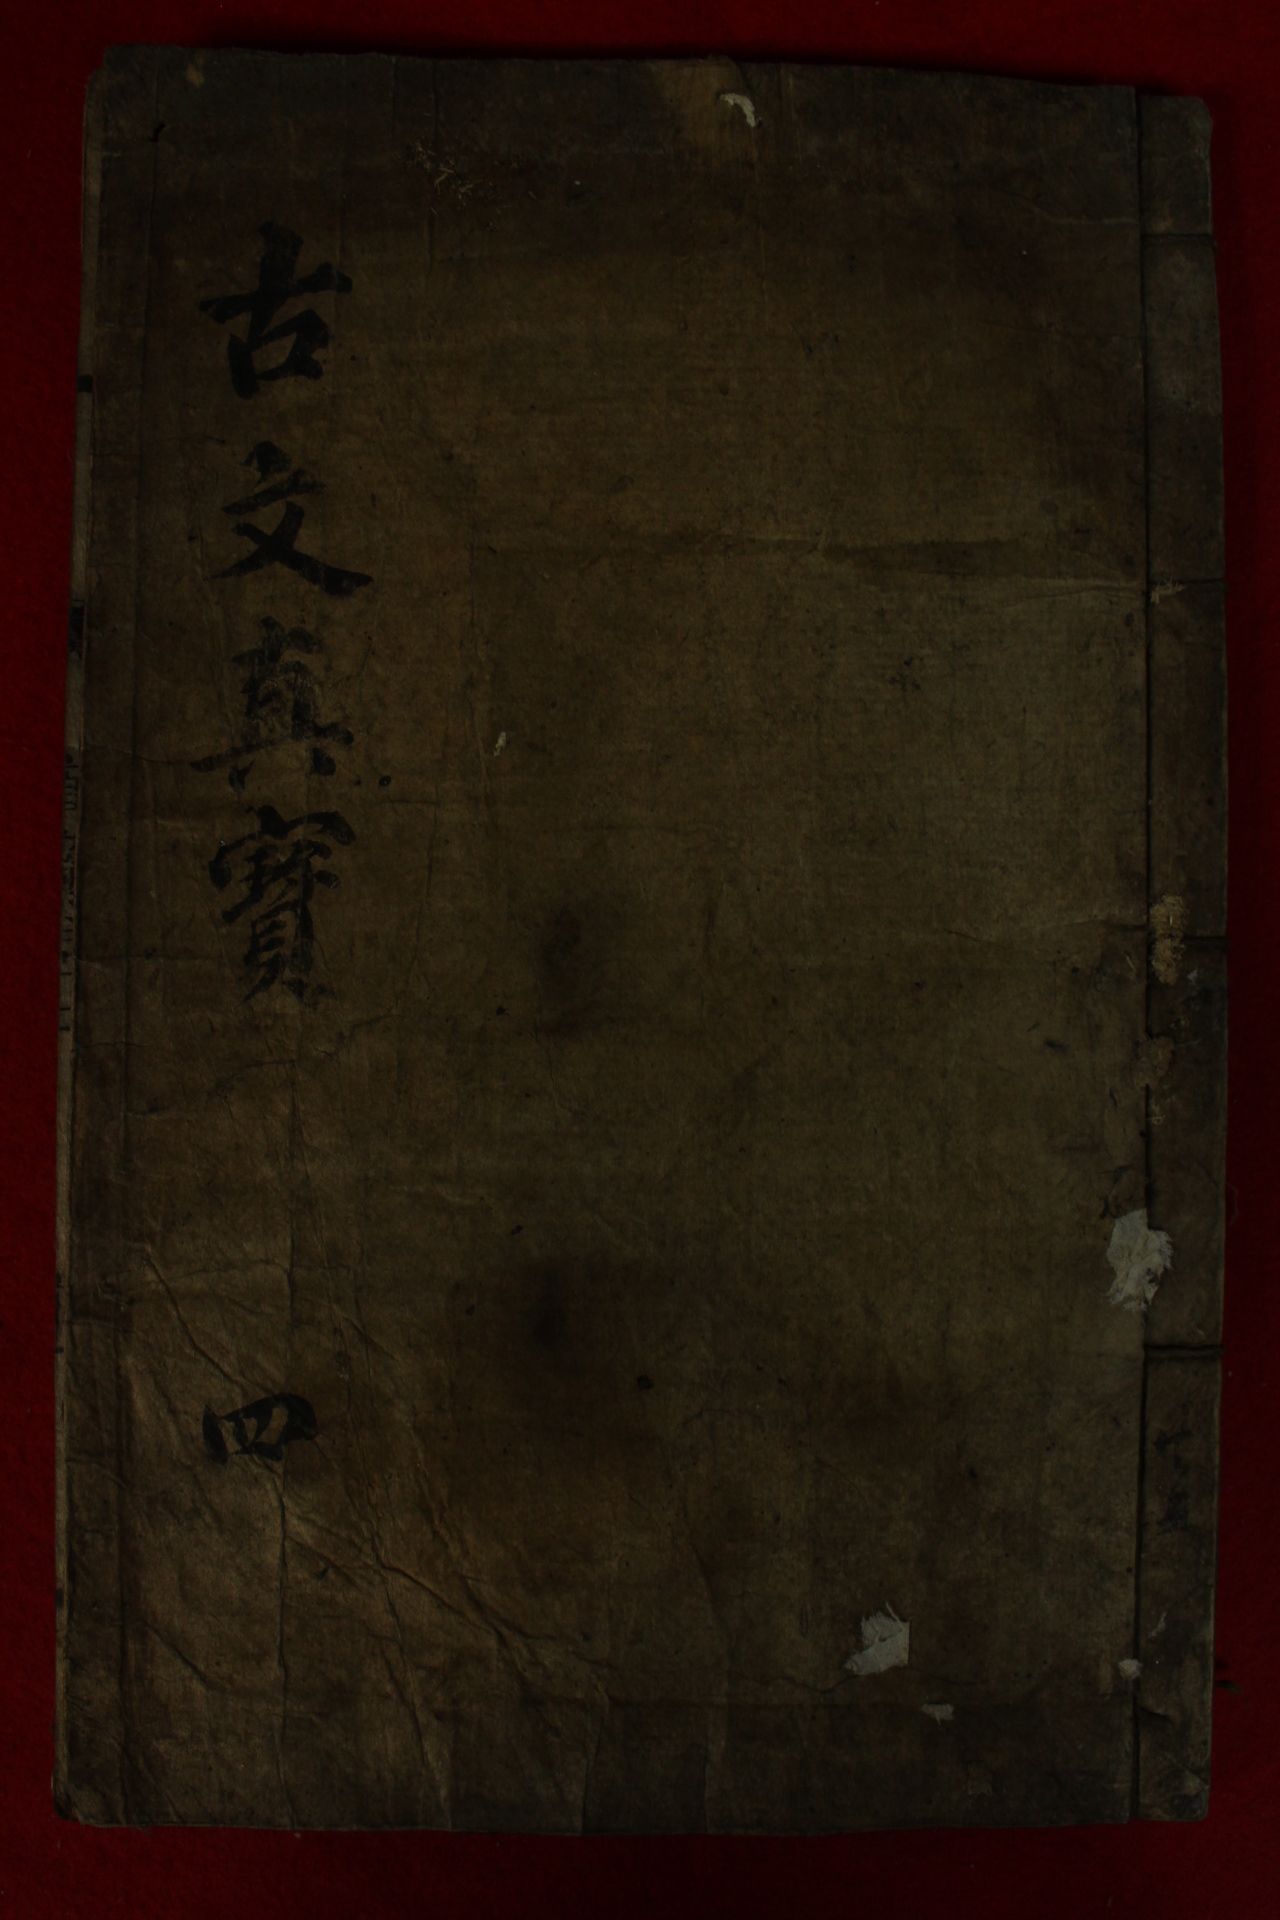 古文真寶
四